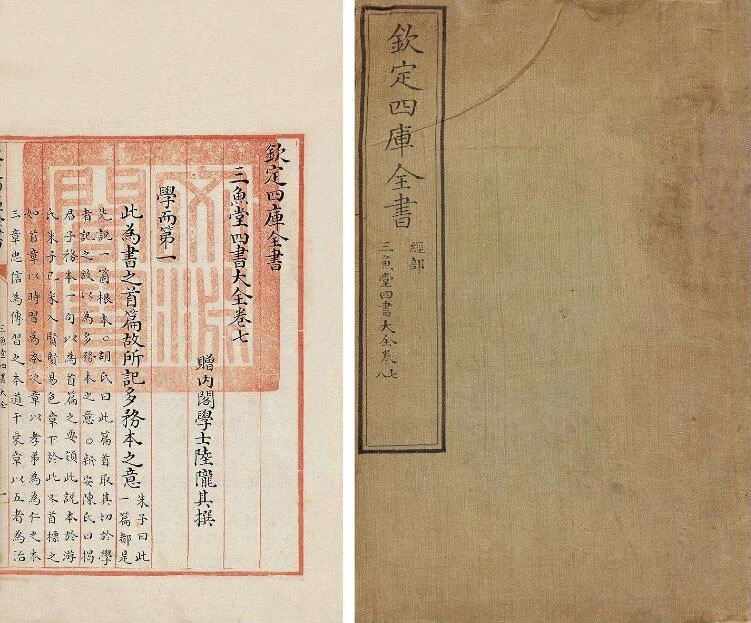 欽定四庫全書
經部
三魚堂四書大全卷七
八
欽定四庫全書
三魚堂四書大全卷七
贈内閣學士陸隴其撰
學而第一
此為書之首篇故所記多務本之意
朱子曰此
一篇都是
先說一箇根本○胡氏曰此篇首取其切於學
者記之故以為多務本之意○新安陳氏曰揭
君子務本一句以為首篇之要領此說本於游
氏朱子已采入賢賢易色章下於此又首標之
如首章以時習為本次章以孝弟為為仁之本
三章忠信為傳習之本道千乗章以五者為治
三魚堂四書大全